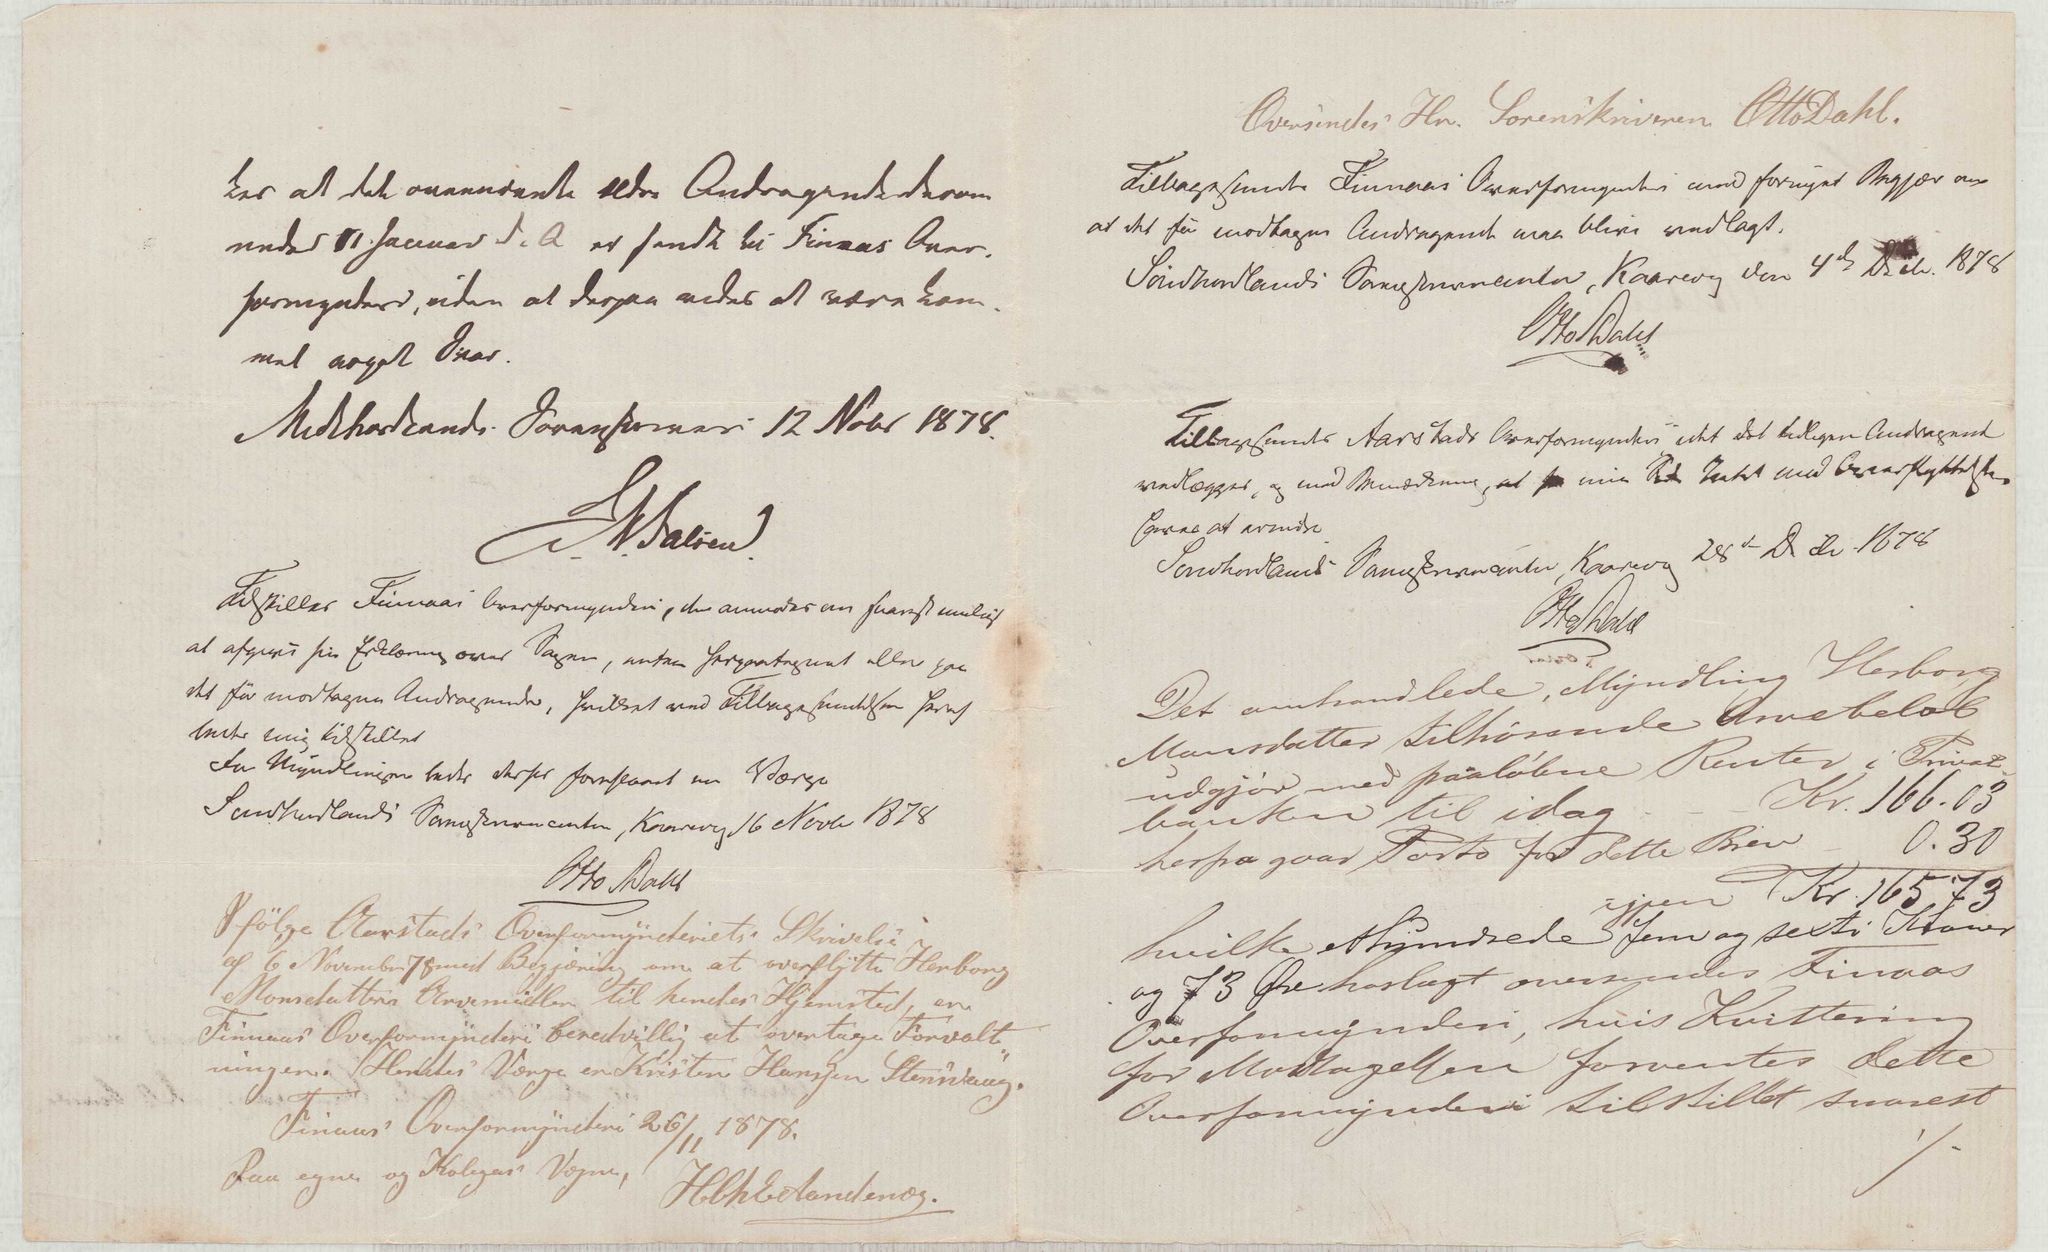 ker at det ovennævnte ældre Andragende derom
under 11 Januar d. A er sendt til Finnaas Over-
formynderi, uden at derpaa vides at være kom-
met noget Svar.
Midthordlands Sorenskriveri 12 Novbr 1878.
Tilstilles Finnaas Overformynderi, der anmodes om snarest muligt
at afgive sin Erklæring over Sagen, enten herpaategnet eller paa
det før modtagne Andragende, hvilket ved Tilbagesendelsen
bedes mig tilstillet
For Myndlingen bedes derhos foreslaaet en Værge
Søndhordlands Sorenskrivercontor, Kaarevig 16 Novbr 1878
Otto Dahl
Ifölge Aarstads Overformynderiets Skrivelse
af 6 November 78 med Begjæring om at overflytte Herborg
Monsdatters Arvemidler til hendes Hjemsted, er
Finnaas Overformynderi beredvillig at overtage Forvalt
ningen. Hendes Værge er Kristen Hanssen
Finnaas Overformynderi 26/11 1878.
Paa egne og Kolegas Vegne,
Oversendes Hr. Sorenskriveren Otto Dahl.
Tilbagesendes Finnaas Overformynderi med fornyet Begjær om
at det før modtagne Andragende maa blive vedlagt.
Søndhordlands Sorenskrivercontor, Kaarevig den 4de Decbr. 1878
Otto Dahl
Tilbagesendes Aarstads Overformynderi idet det tidligere Andragende
vedlægges, og med Bemærkning, at min Intet mod Overflyttelsen
haves at erindre
Søndhordlands Sorenskrivercontor, Kaarevig 28de Decbr 1878
Otto Dahl
Det omhandlede, Myndling Herborg
Monsdatter tilhörende Arvebeløb
udgjör med paalöbne Renter i Privat
banken til idag Kr. 166.03
herpa gaar Porto for dette Brev 0.30
igjen Kr. 165 73
hvilke Et Hundrede fem og sexti Kroner
og 73 Øre hoslagt oversendes Finaas
Overformynderi, hvis Kvittering
for Modtagelsen forventes dette
Overformynderi tilstillet snarest